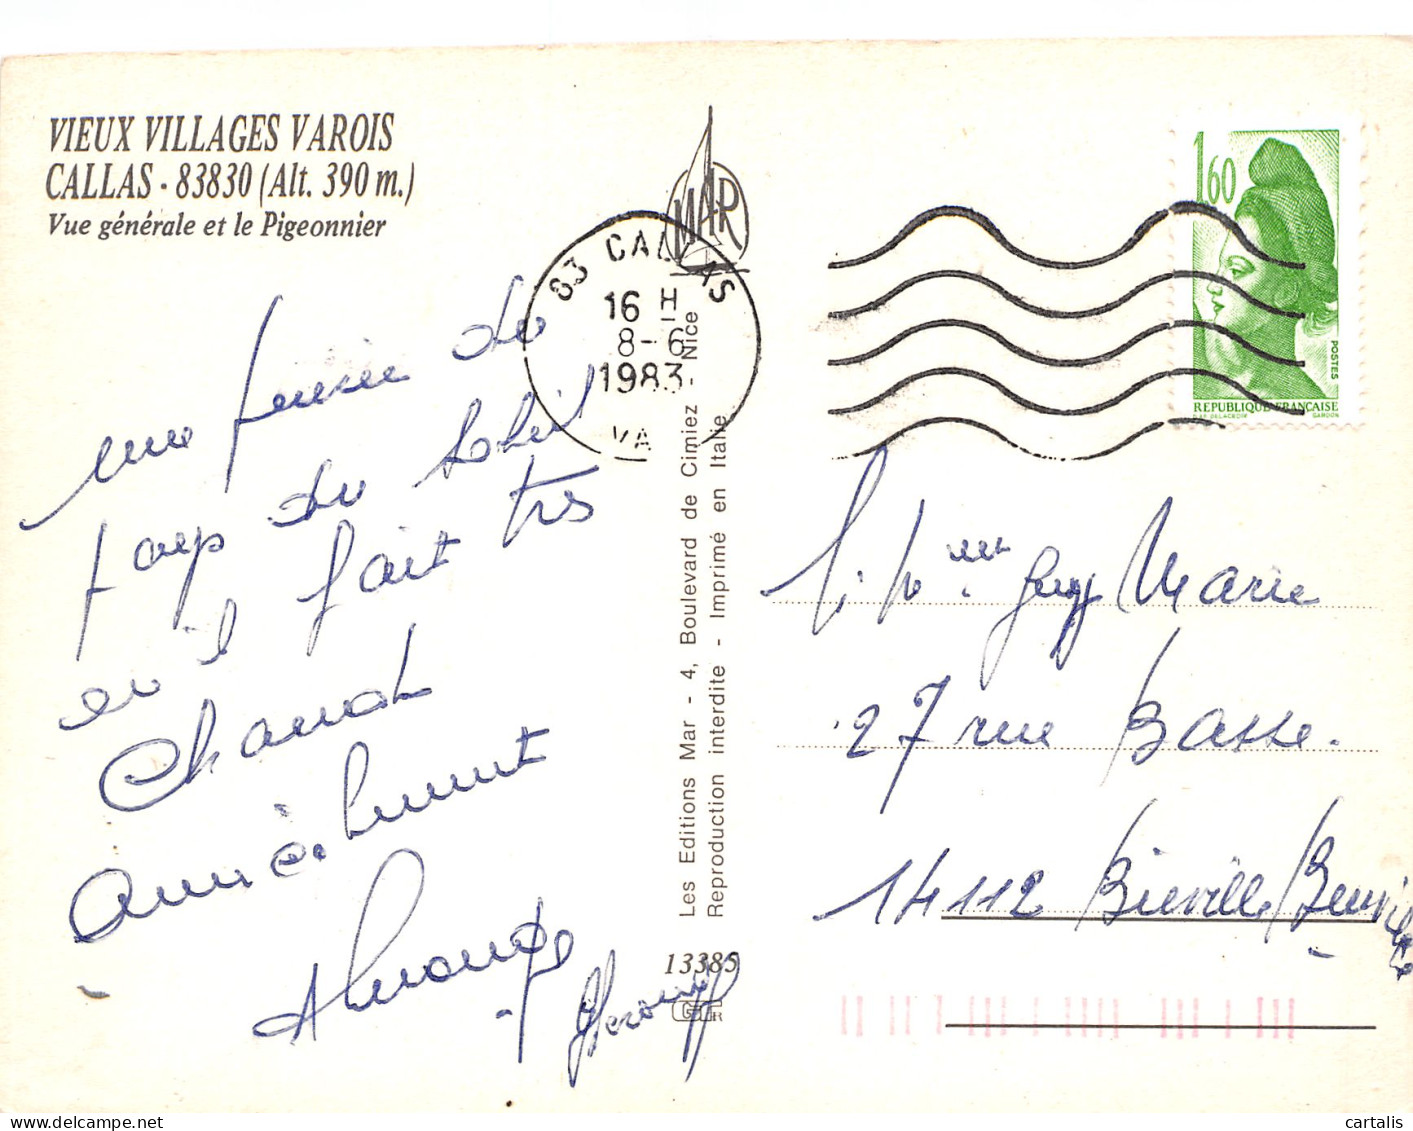 VIEUX VILLAGES VAROIS
CALLAS - 83830 (Alt. 390 m.)
Vue générale et le Pigeonnier
une pensée du
pays du soleil
où il fait très
chaud
Amicalement
MAR
83 CALLAS
16 H
8-6
1983
VA
Les Editions Mar - 4, Boulevard de Cimiez - Nice
Reproduction interdite - Imprimé en Italie
13385
1,60
POSTES
REPUBLIQUE FRANÇAISE
D'AP. DELACROIX GANDON
Guy Marie
27 rue Basse.
14112 Bieville/Beuville
cartalis